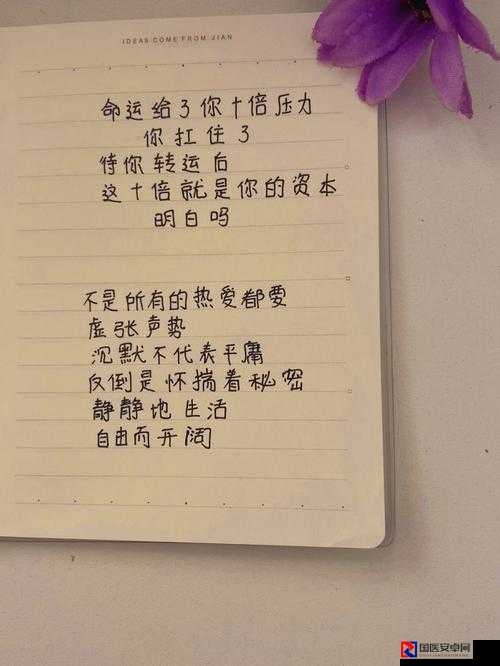 IDEAS COME FROM JIAN
命运给了你十倍压力
你扛住了
待你转运后
这十倍就是你的资本
明白吗
不是所有的热爱都要
虚张声势
沉默不代表平庸
反倒是怀揣着秘密
静静地生活
自由而开阔
国医安卓网